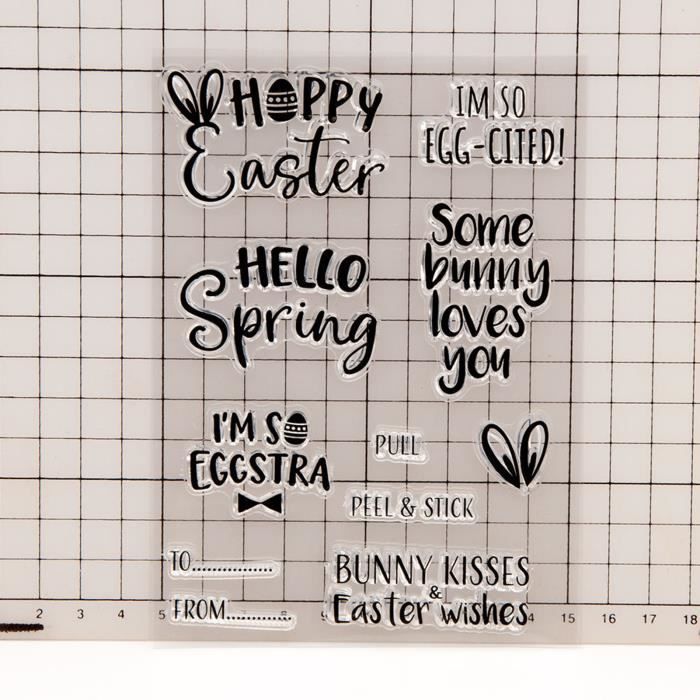 HOPPY
Easter
IM SO
EGG-CITED!
HELLO
Spring
Some
bunny
loves
you
I'M SO
EGGSTRA
PULL
PEEL & STICK
TO..................
FROM..............
BUNNY KISSES
&
Easter wishes
2 3 4 5 8 9 14 15 16 17 18